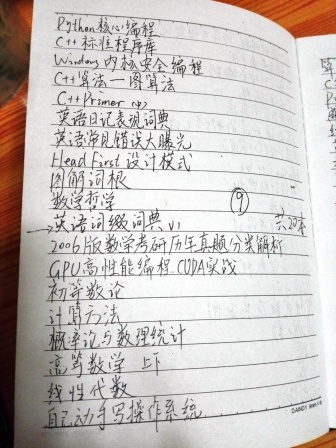 Python核心编程
C++标准程序库
Windows内核安全编程
C++算法一图算法
C++Primer (中)
英语日记表现词典
英语常见错误大曝光
Head First 设计模式
图解词根
数学哲学
⑨
→英语词缀词典 V1
共20本
2006版数学考研历年真题分类解析
GPU高性能编程CUDA实战
初等数论
计算方法
概率论与数理统计
高等数学 上下
线性代数
自己动手写操作系统